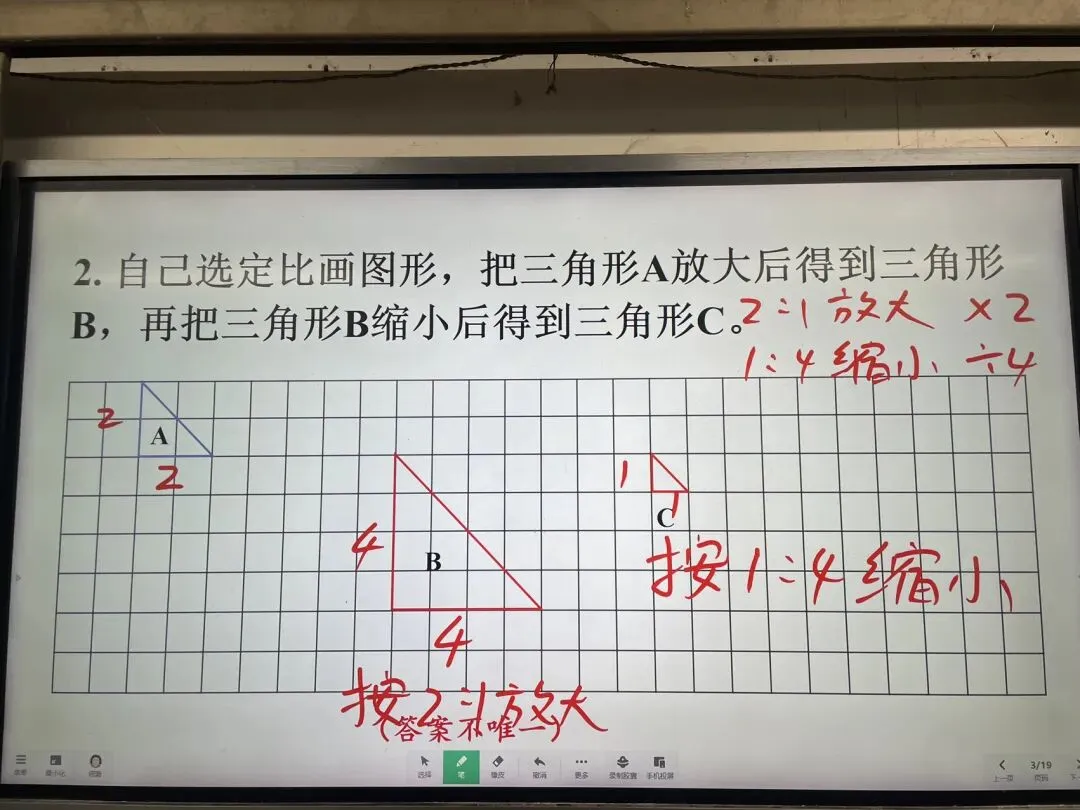 2. 自己选定比画图形，把三角形A放大后得到三角形
B，再把三角形B缩小后得到三角形C。
2:1 放大 ×2
1:4 缩小 ÷4
2
A
2
4
B
4
1
1
C
按1:4缩小
按2:1放大
(答案不唯一)
选择
笔
橡皮
撤销
更多
录制胶囊
手机投屏
最小化
3/19
上一页
页码